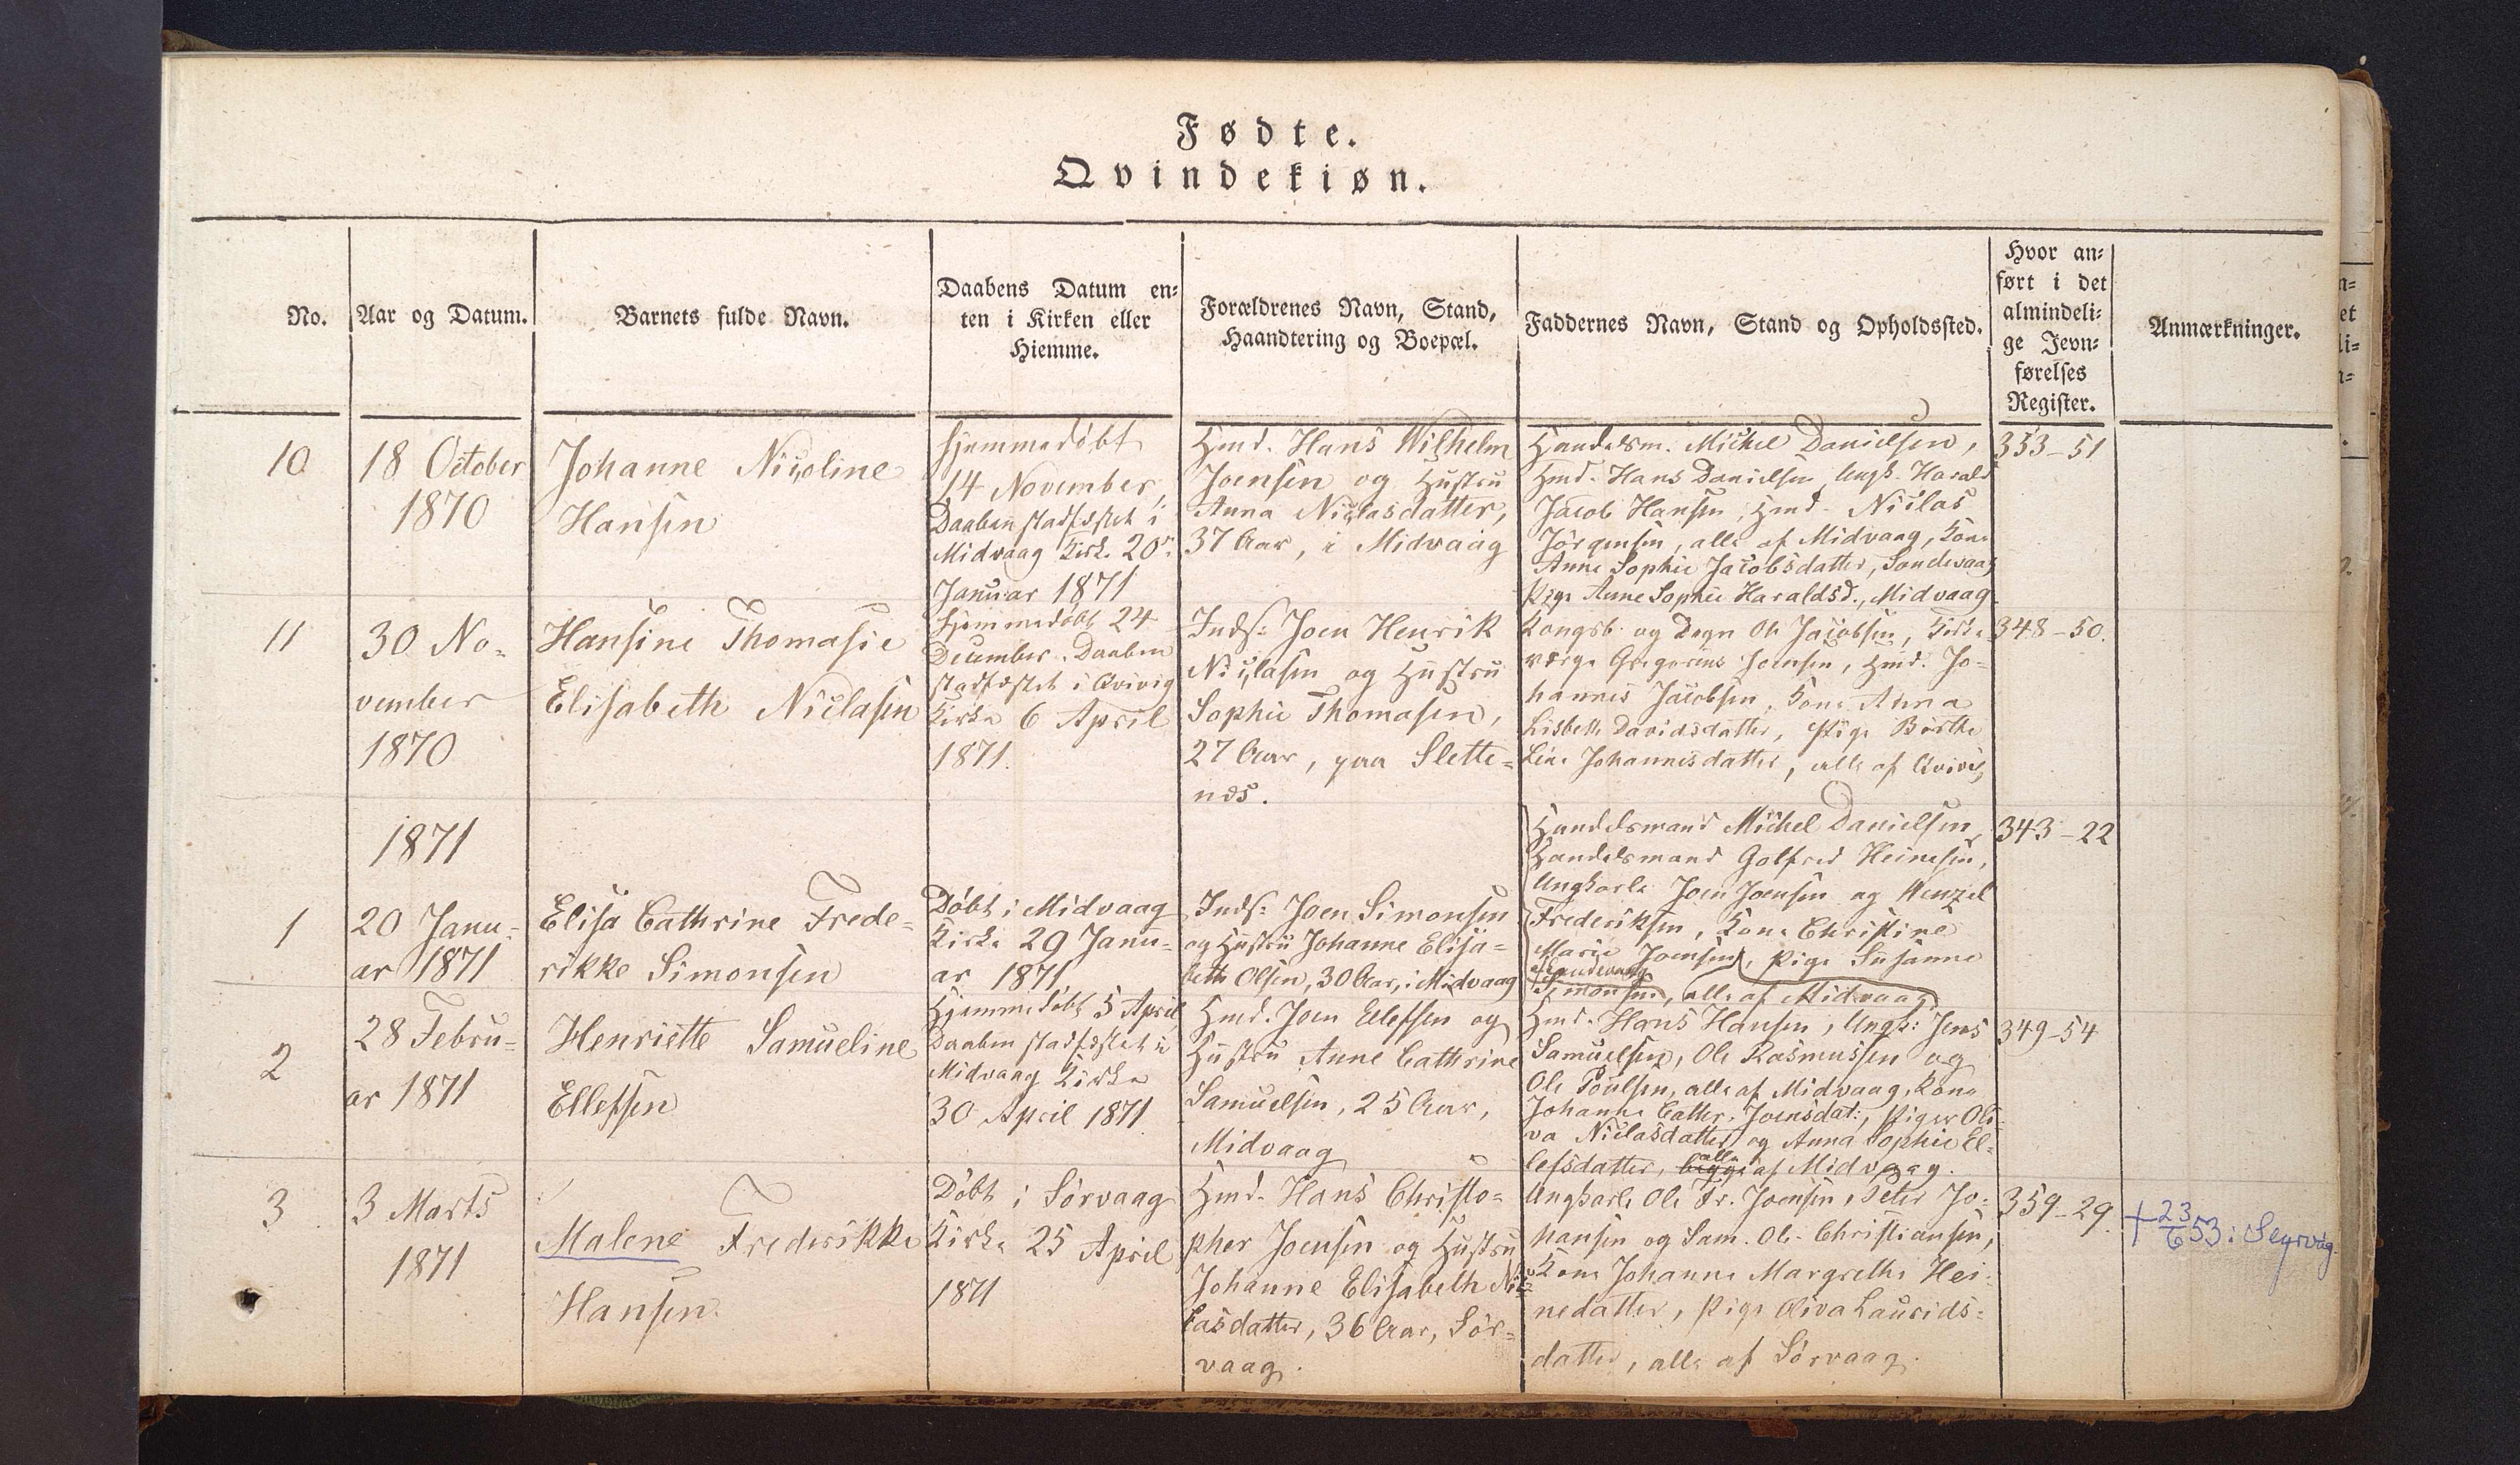 Fødte.
Qvindekiøn.
No.
Aar og Datum.
Barnets fulde Navn.
Daabens Datum en=
ten i Kirken eller
Hiemme.
Forældrenes Navn, Stand,
Haandtering og Boepæl.
Faddernes Navn, Stand og Opholdssted.
Hvor an=
ført i det
almindeli=
ge Jevn=
førelses
Register.
Anmærkninger.
10
18 October
1870
Johanne Nicoline
Hansen
Hjemmedøbt
14 November,
Daaben stadfæstet i
Midvaag Kirke 20de
Januar 1871
Hmd. Hans Wilhelm
Joensen og Hustru
Anna Niclasdatter,
37 Aar, i Midvaag
Handelsm. Michel Danielsen,
Hmd. Hans Danielsen, Ungk. Harald
Jacob Hansen, Hmd. Niclas
Jørgensen, alle af Midvaag, Kone
Anne Sophie Jacobsdatter, Sandevaag
Pige Anne Sophie Haraldsd., Midvaag.
353-51
11
30 No=
vember
1870
Hansine Thomasie
Elisabeth Niclasen
Hjemmedøbt 24
December. Daaben
stadfæstet i Qvivig
Kirke 6 April
1871.
Inds: Joen Henrik
Niclasen og Hustru
Sophie Thomasen,
27 Aar, paa Slette=
næs.
Kongsb. og Degn Ole Jacobsen, Kirke=
værge Gregorius Joensen, Hmd. Jo=
hannes Jacobsen, Kone Anna
Lisbeth Davidsdatter, Pige Birthe
Line Johannesdatter, alle af Qvivig
348-50.
1871
1
20 Janu=
ar 1871
Elisa Cathrine Frede=
rikke Simonsen
Døbt i Midvaag
Kirke 29 Janu=
ar 1871
Inds: Joen Simonsen
og Hustru Johanne Elisa=
beth Olsen, 30 Aar, i Midvaag
Handelsmand Michel Danielsen,
Handelsmand Golfred Heinesen,
Ungkarle Joen Joensen og Wenzel
Frederiksen, Kone Christine
Marie Joensen, Pige Susanne
Sandevaag
Simonsen, alle af Midvaag
343-22
2
28 Febru=
ar 1871
Henriette Samueline
Ellefsen
Hjemmedøbt 5 April,
Daaben stadfæstet i
Midvaag Kirke
30 April 1871
Hmd. Joen Ellefsen og
Hustru Anne Cathrine
Samuelsen, 25 Aar,
Midvaag
Hmd. Hans Hansen, Ungk: Jens
Samuelsen, Ole Rasmussen og
Ole Poulsen, alle af Midvaag, Kone
Johanne Cathr. Joensdat:, Piger Oli=
va Niclasdatter og Anna Sophie El=
lefsdatter, begge alle af Midvaag.
349-54
3
3 Marts
1871
Malene Frederikke
Hansen
Døbt i Sørvaag
Kirke 25 April
1871
Hmd. Hans Christo=
pher Joensen og Hustru
Johanne Elisabeth Nic=
lasdatter, 36 Aar, Sør=
vaag.
Ungkarle Ole Fr. Joensen, Peter Jo=
hansen og Sam. Ole Christiansen,
Kone Johanne Margrethe Hei=
nedatter, Pige Oliva Laurids=
datter, alle af Sørvaag.
359-29.
+ 23/6 53 i Seyrvág.